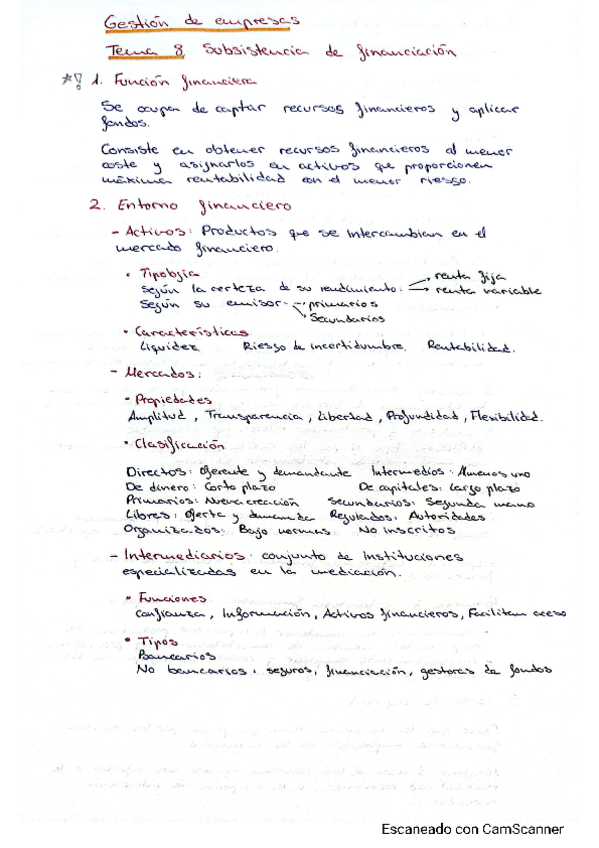 Gestión de empresas
Tema 8 Subsistencia de financiación
*! 1. Función financiera
Se ocupa de captar recursos financieros y aplicar
fondos.
Consiste en obtener recursos financieros al menor
coste y asignarlos en activos que proporcionen
máxima rentabilidad con el menor riesgo.
2. Entorno financiero
- Activos: Productos que se intercambian en el
mercado financiero.
• Tipología
según la certeza de su rendimiento: → renta fija
→ renta variable
Según su emisor → primarios
→ Secundarios
• Características
Liquidez Riesgo de incertidumbre. Rentabilidad.
- Mercados:
• Propiedades
Amplitud, Transparencia, Libertad, Profundidad, Flexibilidad.
• Clasificación
Directos: oferente y demandante Intermedios: Almenos uno
De dinero: Corto plazo De capitales: Largo plazo
Primarios: Nueva creación Secundarios: Segunda mano
Libres: oferta y demanda Regulados: Autoridades
Organizados: Bajo normas. No inscritos
- Intermediarios: conjunto de instituciones
especializadas en la mediación.
• Funciones
Confianza, Información, Activos financieros, Facilitan acceso
• Tipos
Bancarios
No bancarios: seguros, financiación, gestoras de fondos
Escaneado con CamScanner